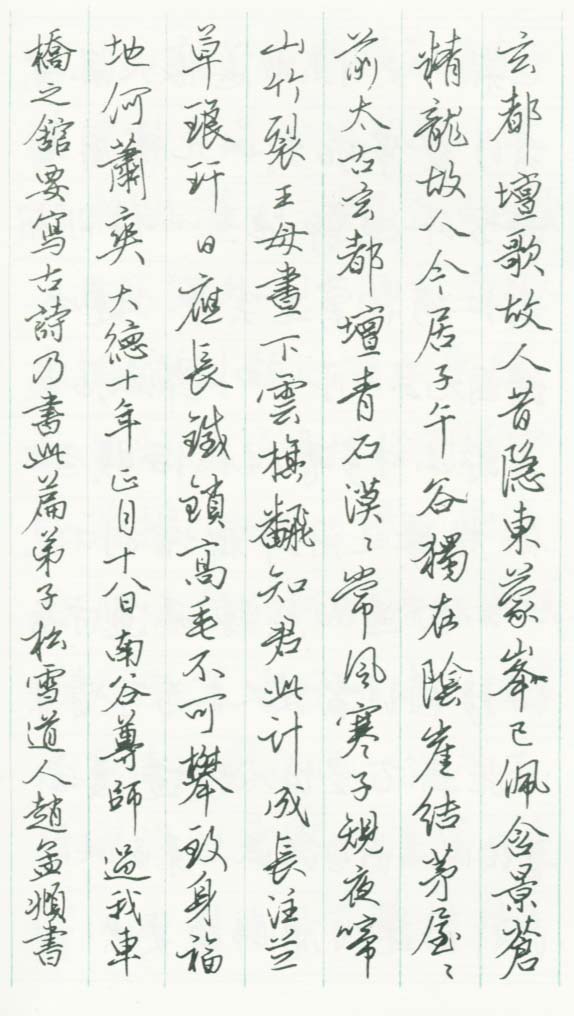 玄都壇歌故人昔隐東蒙峯已佩含景蒼
精龍故人今居子午谷獨在陰崖結茅屋〻
前太古玄都壇青石漠〻常风寒子規夜啼
山竹裂王母晝下雲旗翻知君此计成長往芝
草琅玕日應長鐵鎖高垂不可攀致身福
地何蕭爽大德十年正月十八日南谷尊師過我車
橋之舘要寫古詩乃書此篇弟子松雪道人趙孟頫書